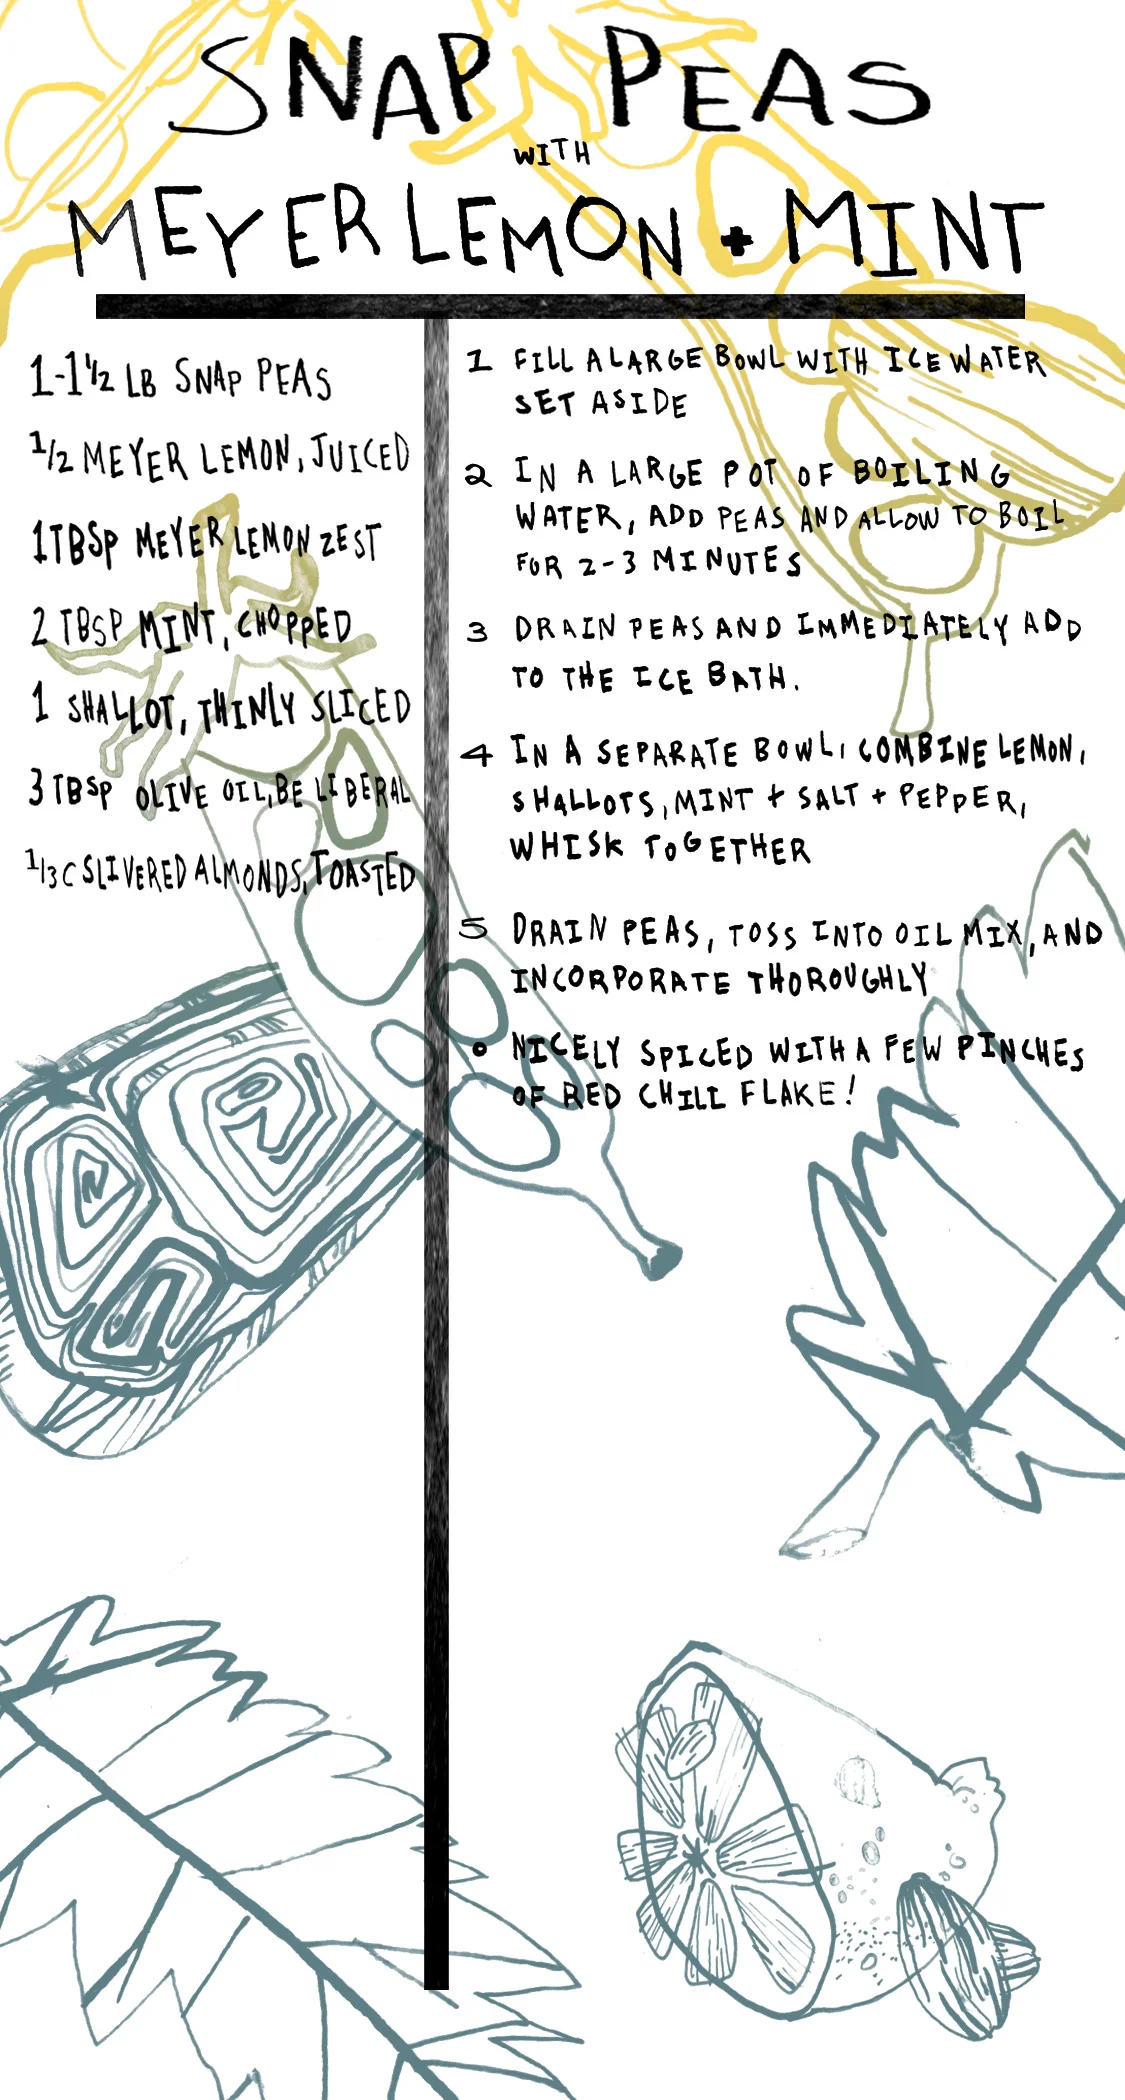 SNAP PEAS
WITH
MEYER LEMON + MINT
1-1 1/2 LB SNAP PEAS
1/2 MEYER LEMON, JUICED
1 TBSP MEYER LEMON ZEST
2 TBSP MINT, CHOPPED
1 SHALLOT, THINLY SLICED
3 TBSP OLIVE OIL, BE LIBERAL
1/3 C SLIVERED ALMONDS, TOASTED
1 FILL A LARGE BOWL WITH ICE WATER
SET ASIDE
2 IN A LARGE POT OF BOILING
WATER, ADD PEAS AND ALLOW TO BOIL
FOR 2-3 MINUTES
3 DRAIN PEAS AND IMMEDIATELY ADD
TO THE ICE BATH.
4 IN A SEPARATE BOWL, COMBINE LEMON,
SHALLOTS, MINT + SALT + PEPPER,
WHISK TOGETHER
5 DRAIN PEAS, TOSS INTO OIL MIX, AND
INCORPORATE THOROUGHLY
• NICELY SPICED WITH A FEW PINCHES
OF RED CHILL FLAKE!